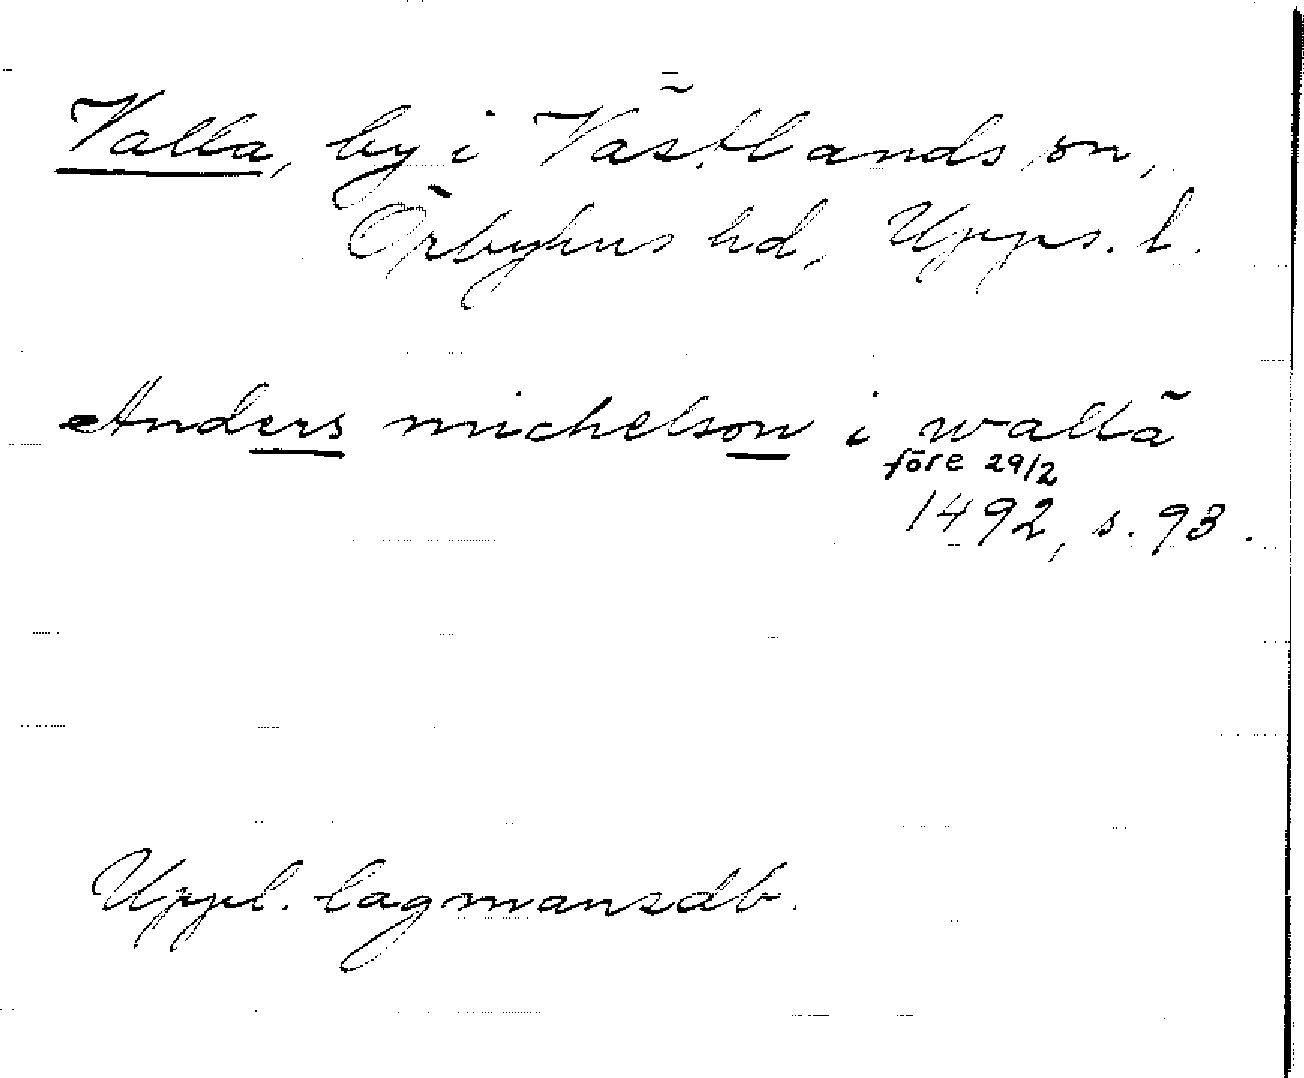 Valla, by i Västlands sn,
Örbyhus hd, Upps. l.
Anders michelson i wallā
före 29/2
1492, s. 93.
Uppl. lagmansdb.